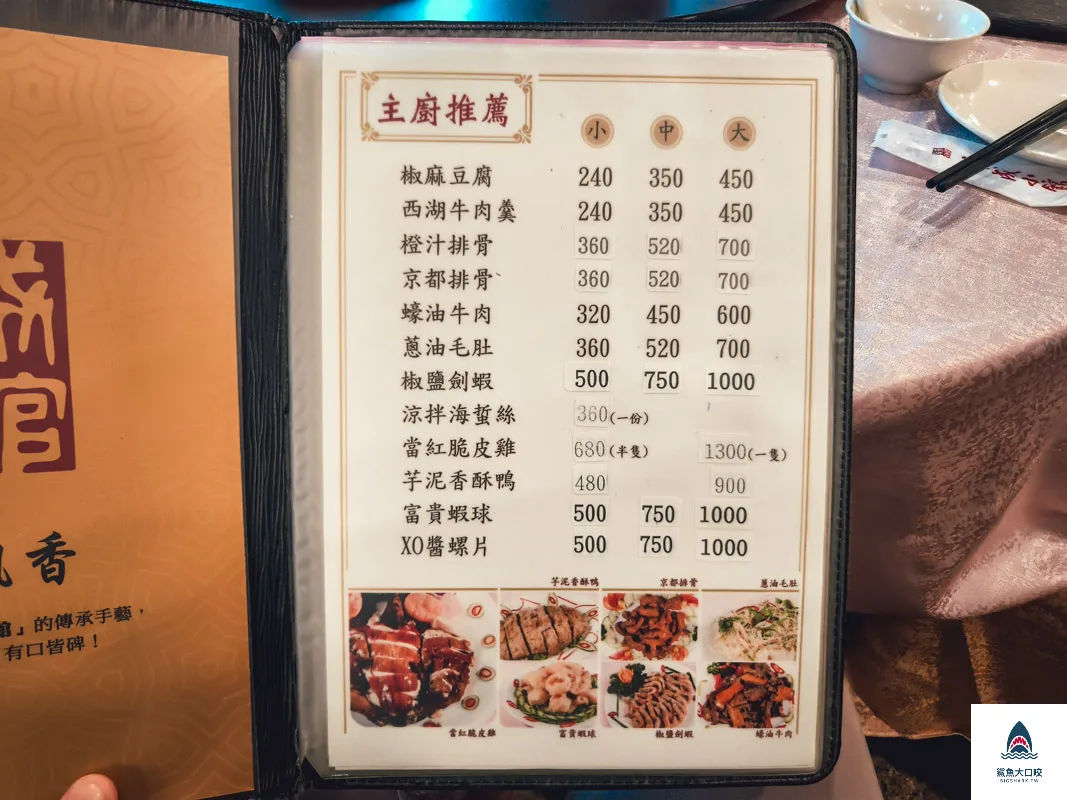 主廚推薦
小 中 大
椒麻豆腐 240 350 450
西湖牛肉羹 240 350 450
橙汁排骨 360 520 700
京都排骨 360 520 700
蠔油牛肉 320 450 600
蔥油毛肚 360 520 700
椒鹽劍蝦 500 750 1000
涼拌海蜇絲 360(一份)
當紅脆皮雞 680(半隻) 1300(一隻)
芋泥香酥鴨 480 900
富貴蝦球 500 750 1000
XO醬螺片 500 750 1000
芋泥香酥鴨 京都排骨 蔥油毛肚
當紅脆皮雞 富貴蝦球 椒鹽劍蝦 蠔油牛肉
香
館』的傳承手藝，
有口皆碑！
鯊魚大口咬
BIGSHARK.TW